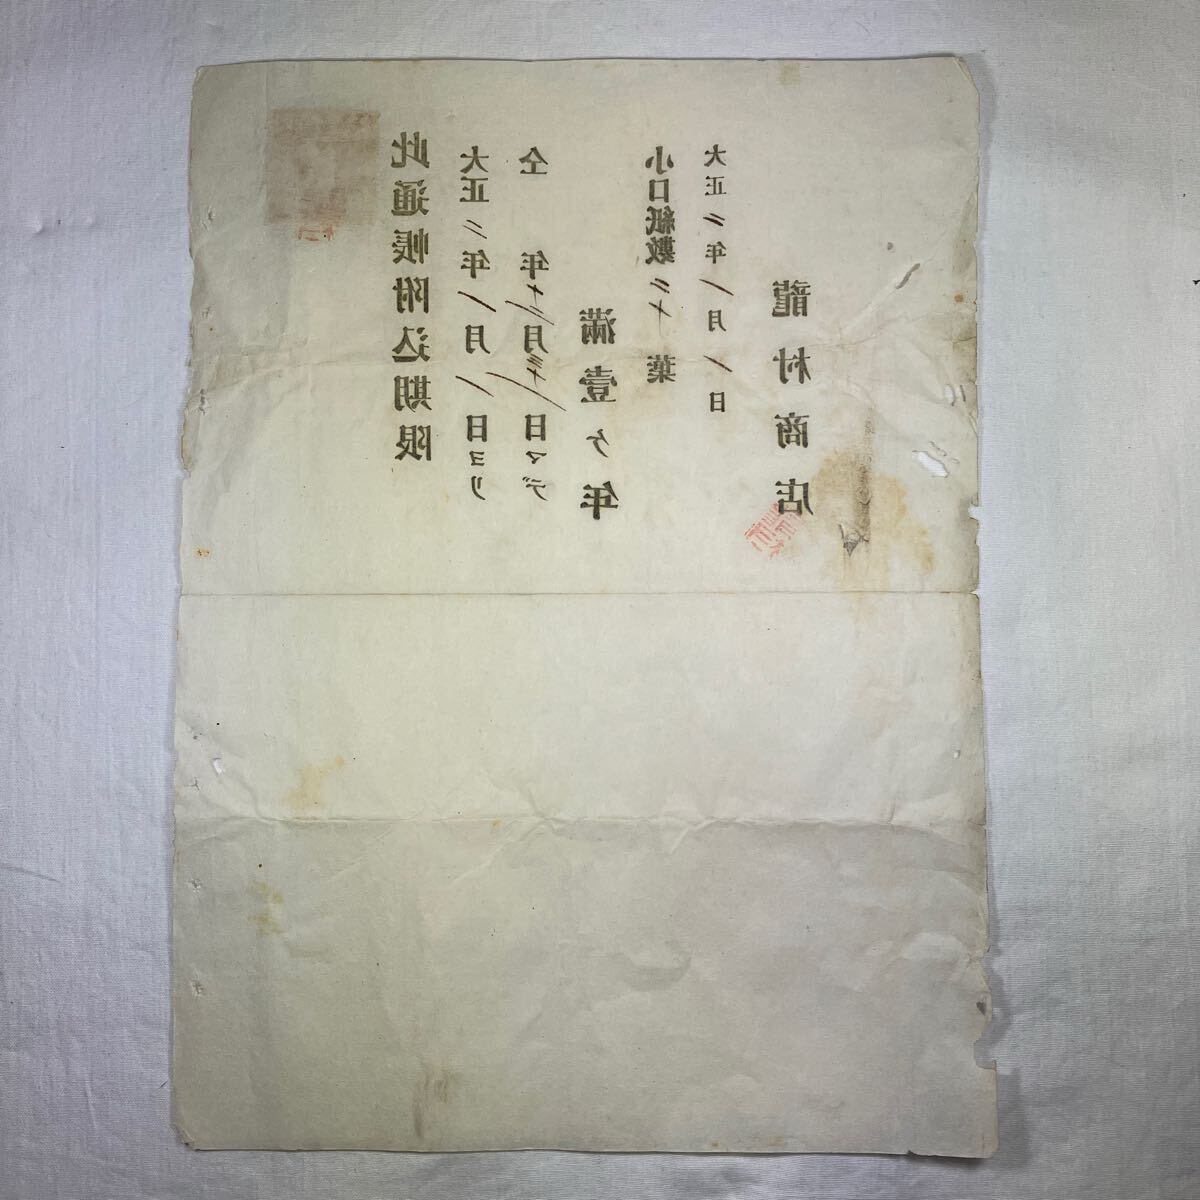 此通帳附込期限
大正二年一月一日ヨリ
仝年十二月三十一日マデ
滿壹ケ年
小口紙數二十葉
大正二年一月一日
龍村商店